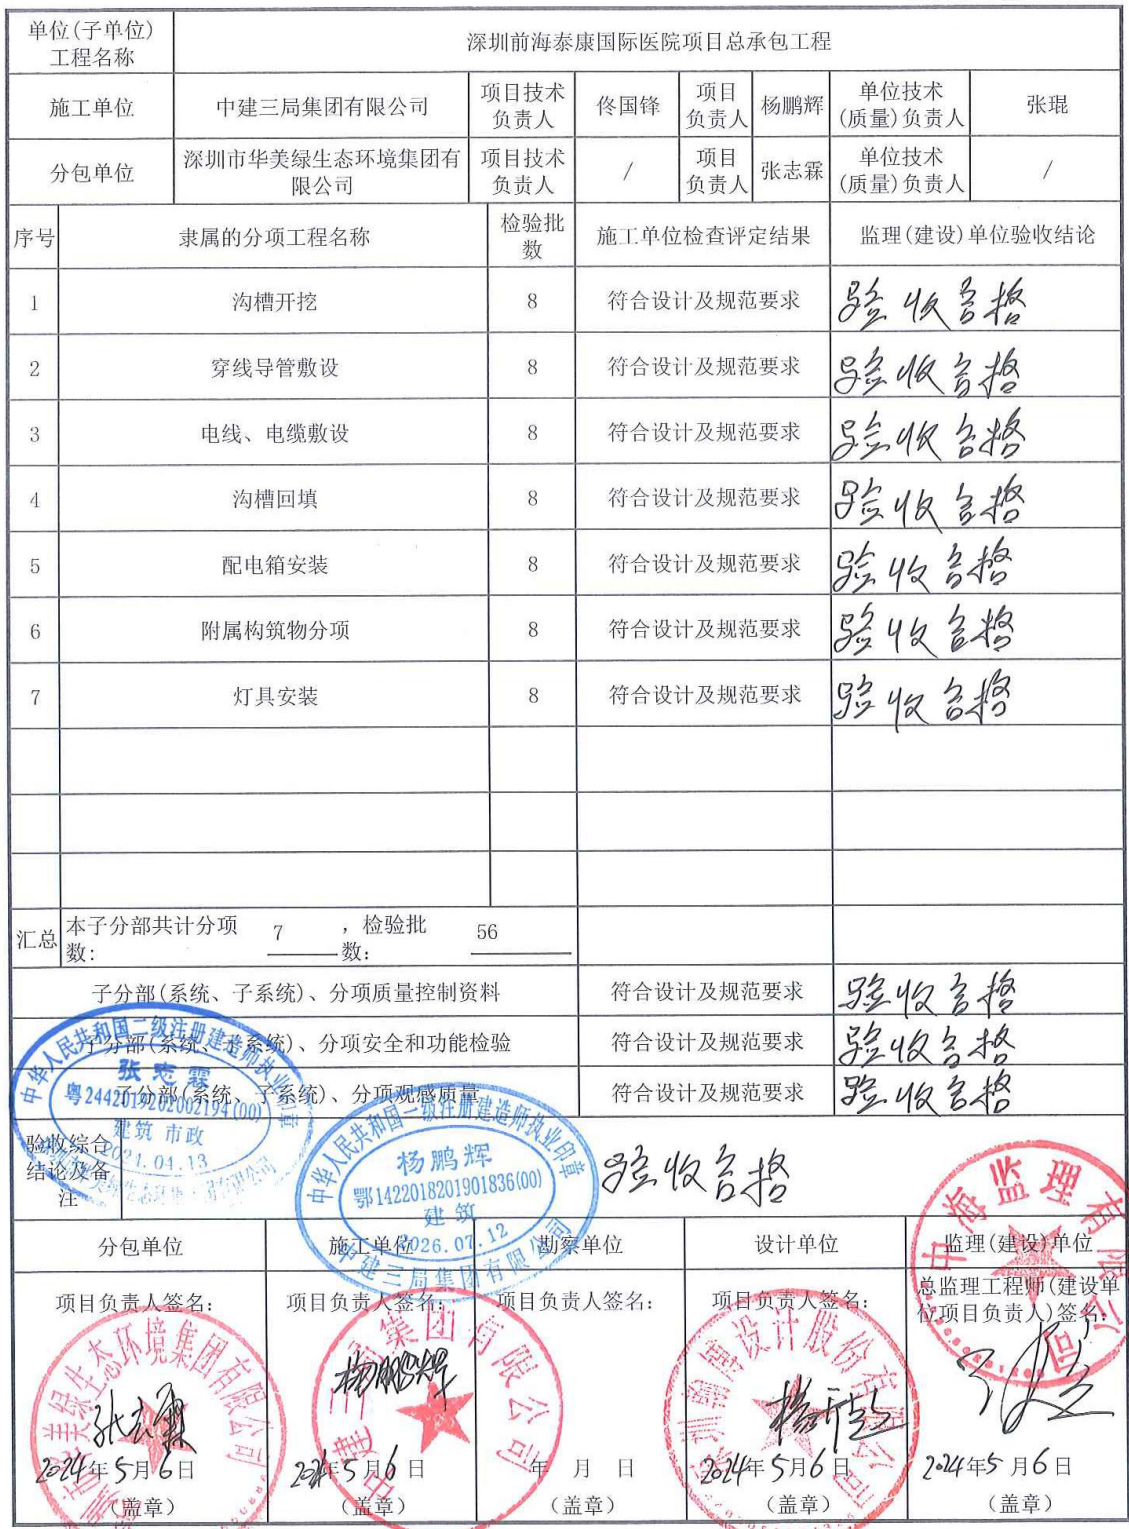 单位(子单位)
工程名称
深圳前海泰康国际医院项目总承包工程
施工单位
中建三局集团有限公司
项目技术
负责人
佟国锋
项目
负责人
杨鹏辉
单位技术
(质量)负责人
张琨
分包单位
深圳市华美绿生态环境集团有
限公司
项目技术
负责人
/
项目
负责人
张志霖
单位技术
(质量)负责人
/
序号
隶属的分项工程名称
检验批
数
施工单位检查评定结果
监理(建设)单位验收结论
1
沟槽开挖
8
符合设计及规范要求
验收合格
2
穿线导管敷设
8
符合设计及规范要求
验收合格
3
电线、电缆敷设
8
符合设计及规范要求
验收合格
4
沟槽回填
8
符合设计及规范要求
验收合格
5
配电箱安装
8
符合设计及规范要求
验收合格
6
附属构筑物分项
8
符合设计及规范要求
验收合格
7
灯具安装
8
符合设计及规范要求
验收合格
汇总
本子分部共计分项
数:
7
,检验批
数:
56
子分部(系统、子系统)、分项质量控制资料
符合设计及规范要求
验收合格
子分部(系统、子系统)、分项安全和功能检验
符合设计及规范要求
验收合格
子分部(系统、子系统)、分项观感质量
符合设计及规范要求
验收合格
中华人民共和国二级注册建造师执业印章
张志霖
粤2442019202002194(00)
建筑 市政
中华人民共和国一级注册建造师执业印章
杨鹏辉
鄂1422018201901836(00)
建筑
2026.07.12
中建三局集团有限公司
验收综合
结论及备
注
验收合格
中海监理有限公司
分包单位
施工单位
勘察单位
设计单位
监理(建设)单位
项目负责人签名:
项目负责人签名:
项目负责人签名:
项目负责人签名:
总监理工程师(建设单
位项目负责人)签名:
张志霖
杨鹏辉
2024年5月6日
2024年5月6日
年 月 日
2024年5月6日
2024年5月6日
(盖章)
(盖章)
(盖章)
(盖章)
(盖章)